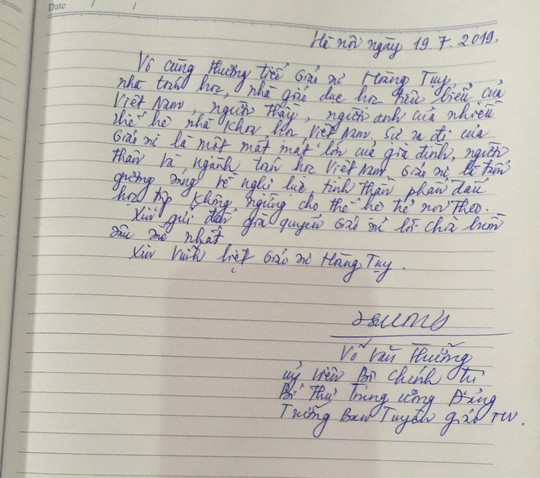 Date / /
Hà nội ngày 19.7.2019.
Vô cùng thương tiếc Giáo sư Hoàng Tụy,
nhà toán học, nhà giáo dục học tiêu biểu của
Việt Nam, người thầy, người anh của nhiều
thế hệ nhà khoa học Việt Nam. Sự ra đi của
Giáo sư là một mất mát lớn của gia đình, người
thân và ngành toán học Việt Nam. Giáo sư là tấm
gương sáng về nghị lực, tinh thần phấn đấu
học tập không ngừng cho thế hệ trẻ noi theo.
Xin gửi đến gia quyến Giáo sư lời chia buồn
sâu sắc nhất.
Xin vĩnh biệt Giáo sư Hoàng Tụy.
Võ Văn Thưởng
Uỷ viên Bộ Chính trị
Bí Thư Trung ương Đảng
Trưởng Ban Tuyên giáo TW.